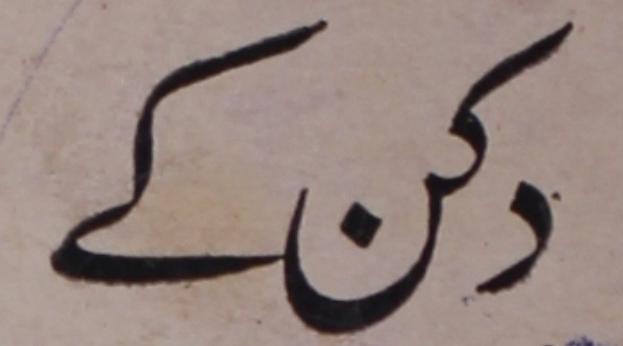 دکن کے